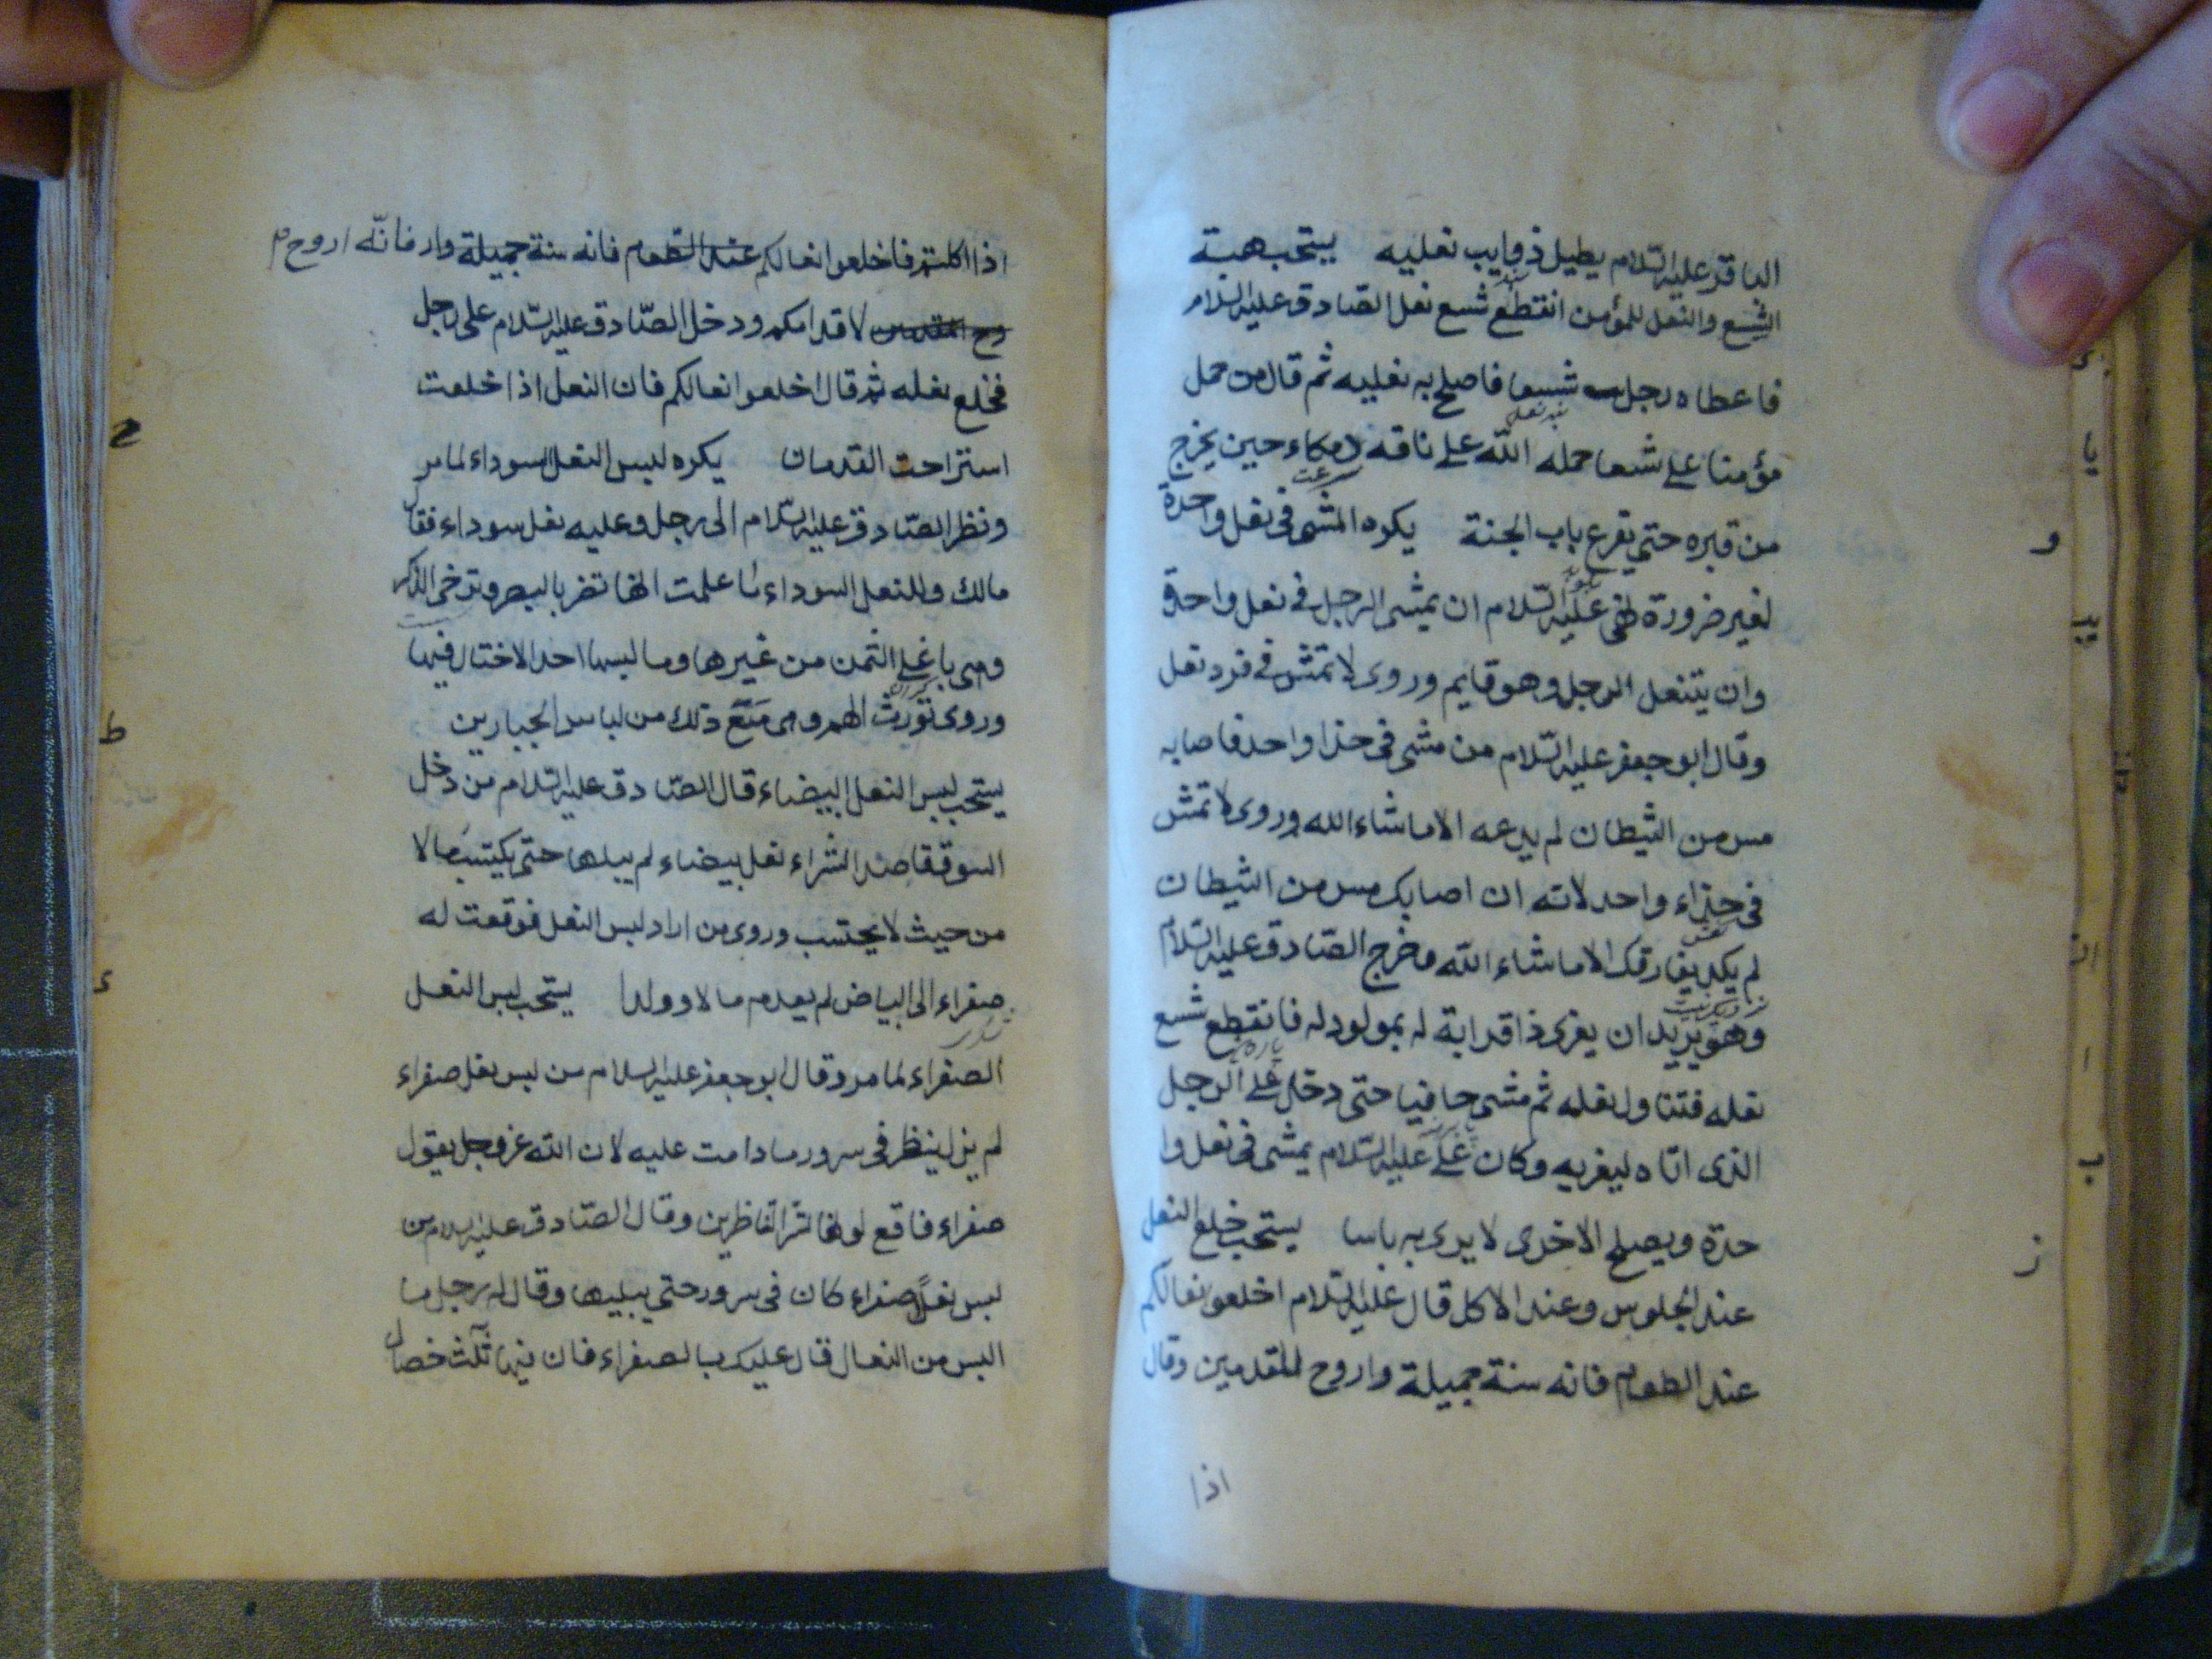 الباقر عليه السلام يطيل ذوايب نعليه يستحب هبة
الشسع والنعل للمؤمن انقطع شسع نعل الصادق عليه السلام
فاعطاه رجل شسعا فاصلح به نعليه ثم قال من حمل
بند نعل
مؤمنا على شسع حمله الله على ناقه دمكاء حين يخرج
سرعت
من قبره حتى يقرع باب الجنة يكره المشى فى نعل واحدة
لغير ضرورة نهى عليه السلام ان يمشى الرجل فى نعل واحدة
وان يتنعل الرجل وهو قايم وروى لا تمش فى فرد نعل
وقال ابو جعفر عليه السلام من مشى فى حذا واحد فاصابه
مس من الشيطان لم يدعه الا ما شاء الله وروى لا تمش
فى حذاء واحد لانه ان اصابك مس من الشيطان
لم يكد يفارقك الا ما شاء الله وخرج الصادق عليه السلام
وهو يريد ان يعزى ذا قرابة له بمولود له فانقطع شسع
نعله فتناول نعله ثم مشى حافيا حتى دخل على الرجل
الذى اتاه ليعزيه وكان على عليه السلام يمشى فى نعل وا
حدة ويصلح الاخرى لا يرى به باسا يستحب خلع النعل
عند الجلوس وعند الاكل قال عليه السلام اخلعوا نعالكم
عند الطعام فانه سنة جميلة واروح للقدمين وقال
اذا
و
ز
اذا اكلتم فاخلعوا نعالكم عند الطعام فانه سنة جميلة وار فانّه اروح م
لاقدامكم ودخل الصّادق عليه السّلام على رجل
فخلع نعله ثم قال اخلعوا نعالكم فان النعل اذا خلعت
استراحت القدمان يكره لبس النعل السوداء لما مر
ونظر الصّادق عليه السّلام الى رجل وعليه نعل سوداء فقال
مالك وللنعل السوداء اما علمت انها تضر بالبصر وترخى الذكر
وهى باغلى الثمن من غيرها وما لبسها احد الا اختال فيها
وروى تورث الهم وهى مَعَ ذلك من لباس الجبارين
يستحب لبس النعل البيضاء قال الصّادق عليه السّلام من دخل
السوق قاصدا لشراء نعل بيضاء لم يبلها حتى يكتسب مالا
من حيث لا يحتسب وروى من اراد لبس النعل فوقعت له
صفراء الى البياض لم يعدم مالا وولدا يستحب لبس النعل
الصفراء لما مر وقال ابو جعفر عليه السلام من لبس نعل صفراء
لم يزل ينظر فى سرور ما دامت عليه لان الله عز وجل يقول
صفراء فاقع لونها تسر الناظرين وقال الصّادق عليه السلام من
لبس نعلاً صفراء كان فى سرور حتى يبليها وقال له رجل ما
البس من النعال قال عليك بالصفراء فان فيها ثلث خصال
ح
ط
ى